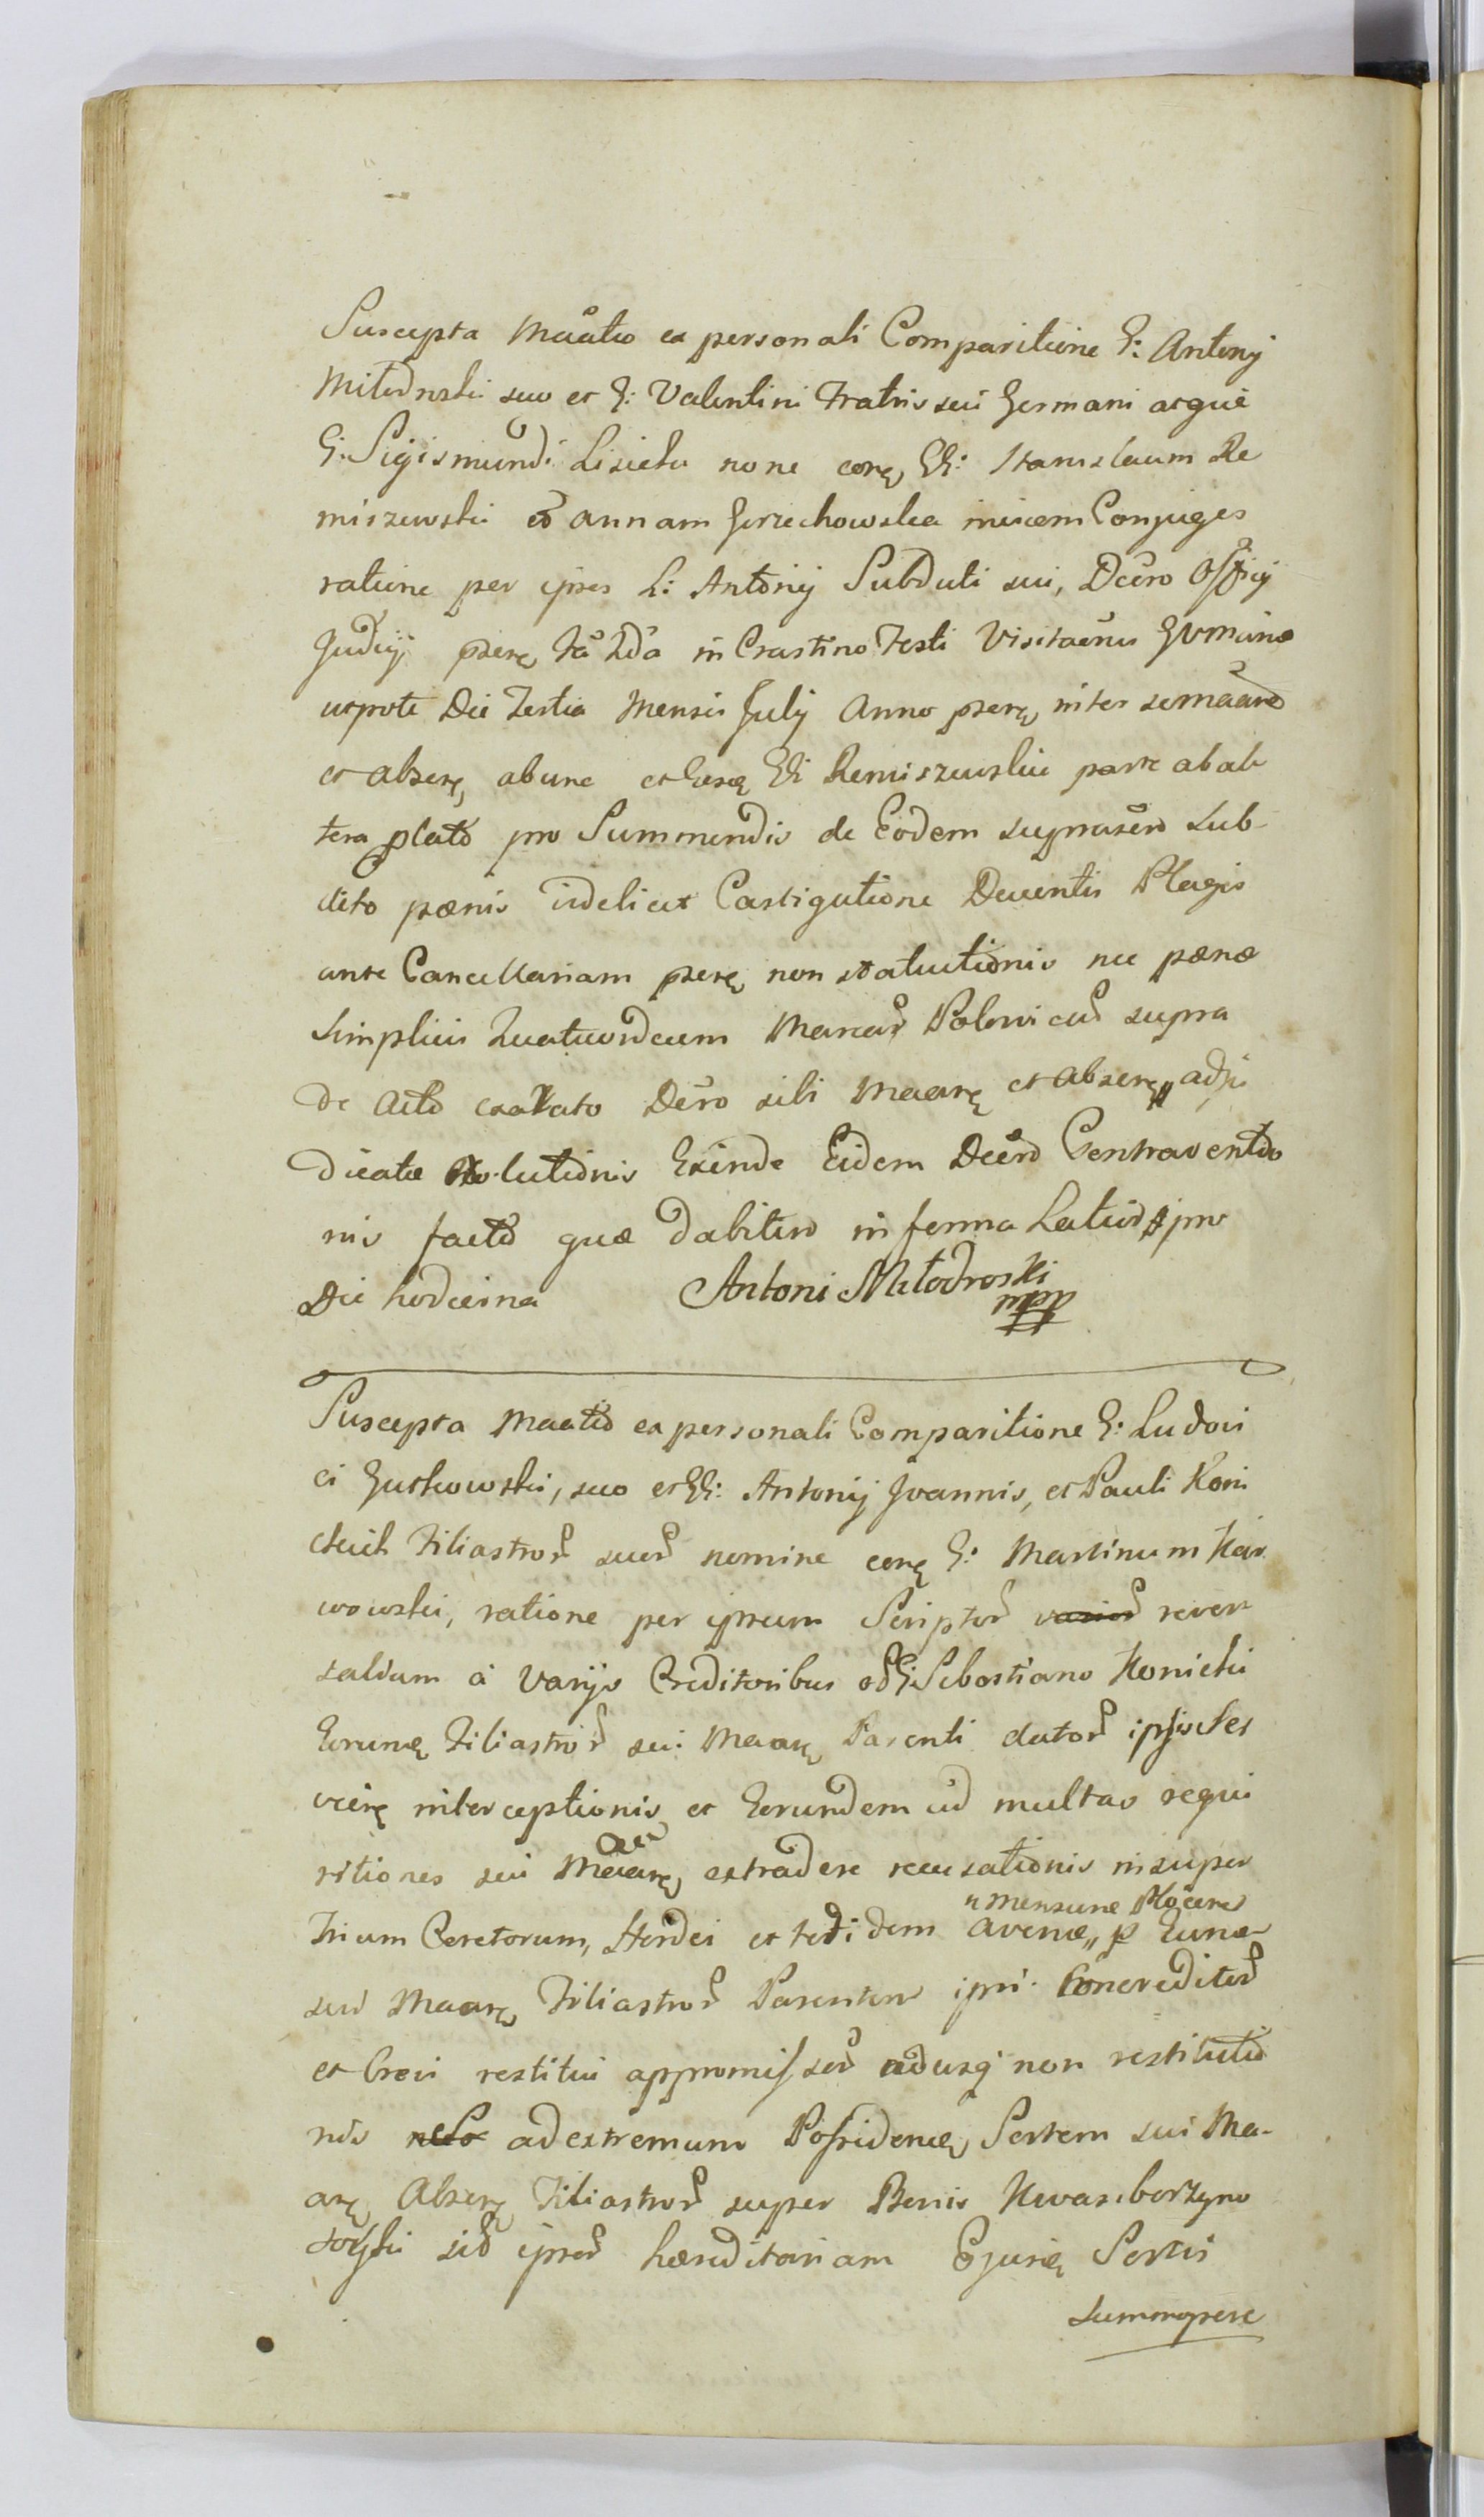 Suscepta Maatio ex personali Comparitione G: Antonij
Mitodroski suo et G: Valentini Fratris sui Germani atque
G: Sigismundi Lisicki none conę GG: Stanislaum Re
miszewski et Annam Grzechowska invicem Conjuges
ratione per ipsos L: Antonij Subditi sui, Decro Officij
Judicij pserę in Crastino Festi Visitaonis GVMariae
utpote Die Tertia Mensis Julij Anno pserę inter se
et abserę, ab una et Gsoę GG Remiszewskie parte ab al
tera plato pro Summendis de Eodem Sub
dito paenis videlicet Castigatione Ducentis Plagis
ante Cancellariam pserę non statuitionis nec paenae
Simplicis Quatuordecim Marcar Polonicar supra
de Acto exarato Decro sibi Maarę et abserę,, adju
dicatae solutionis Exinde Eidem Decro Contraventio
nis facto quae dabitur in forma Latior pro
Die hodierna Antoni Mitodroski
mpp
Suscepta Maatio ex personali Comparitione G: Ludovi
ci Gutkowski, suo et GG: Antonij Joannis, et Pauli Koni
ckich Filiastror suor nomine conę G: Martinum Kar
wowski, ratione per ipsum Scriptor varior rever
salium à Varijs Creditoribus Sebastiano Konicki
Eorumę Filiastror sui Maarę Parenti dator
interceptionis, et Eorundem ad multas requi
sitiones sui Maarę extradere recusationis insuper
Trium Coretorum, Hordei et totidem Avenae,, p
" mensurae Plocen
Maarę Filiastror Parentem ipsi Concreditor
et Crevi restitui appromissor adusq non restitutio
nis ad extremum Possidenę Sortem sui Ma-
arę Abserę Filiastror super Bonis Kwasiborzyno
ipsor haereditariam Ejusę Sortis
summopere